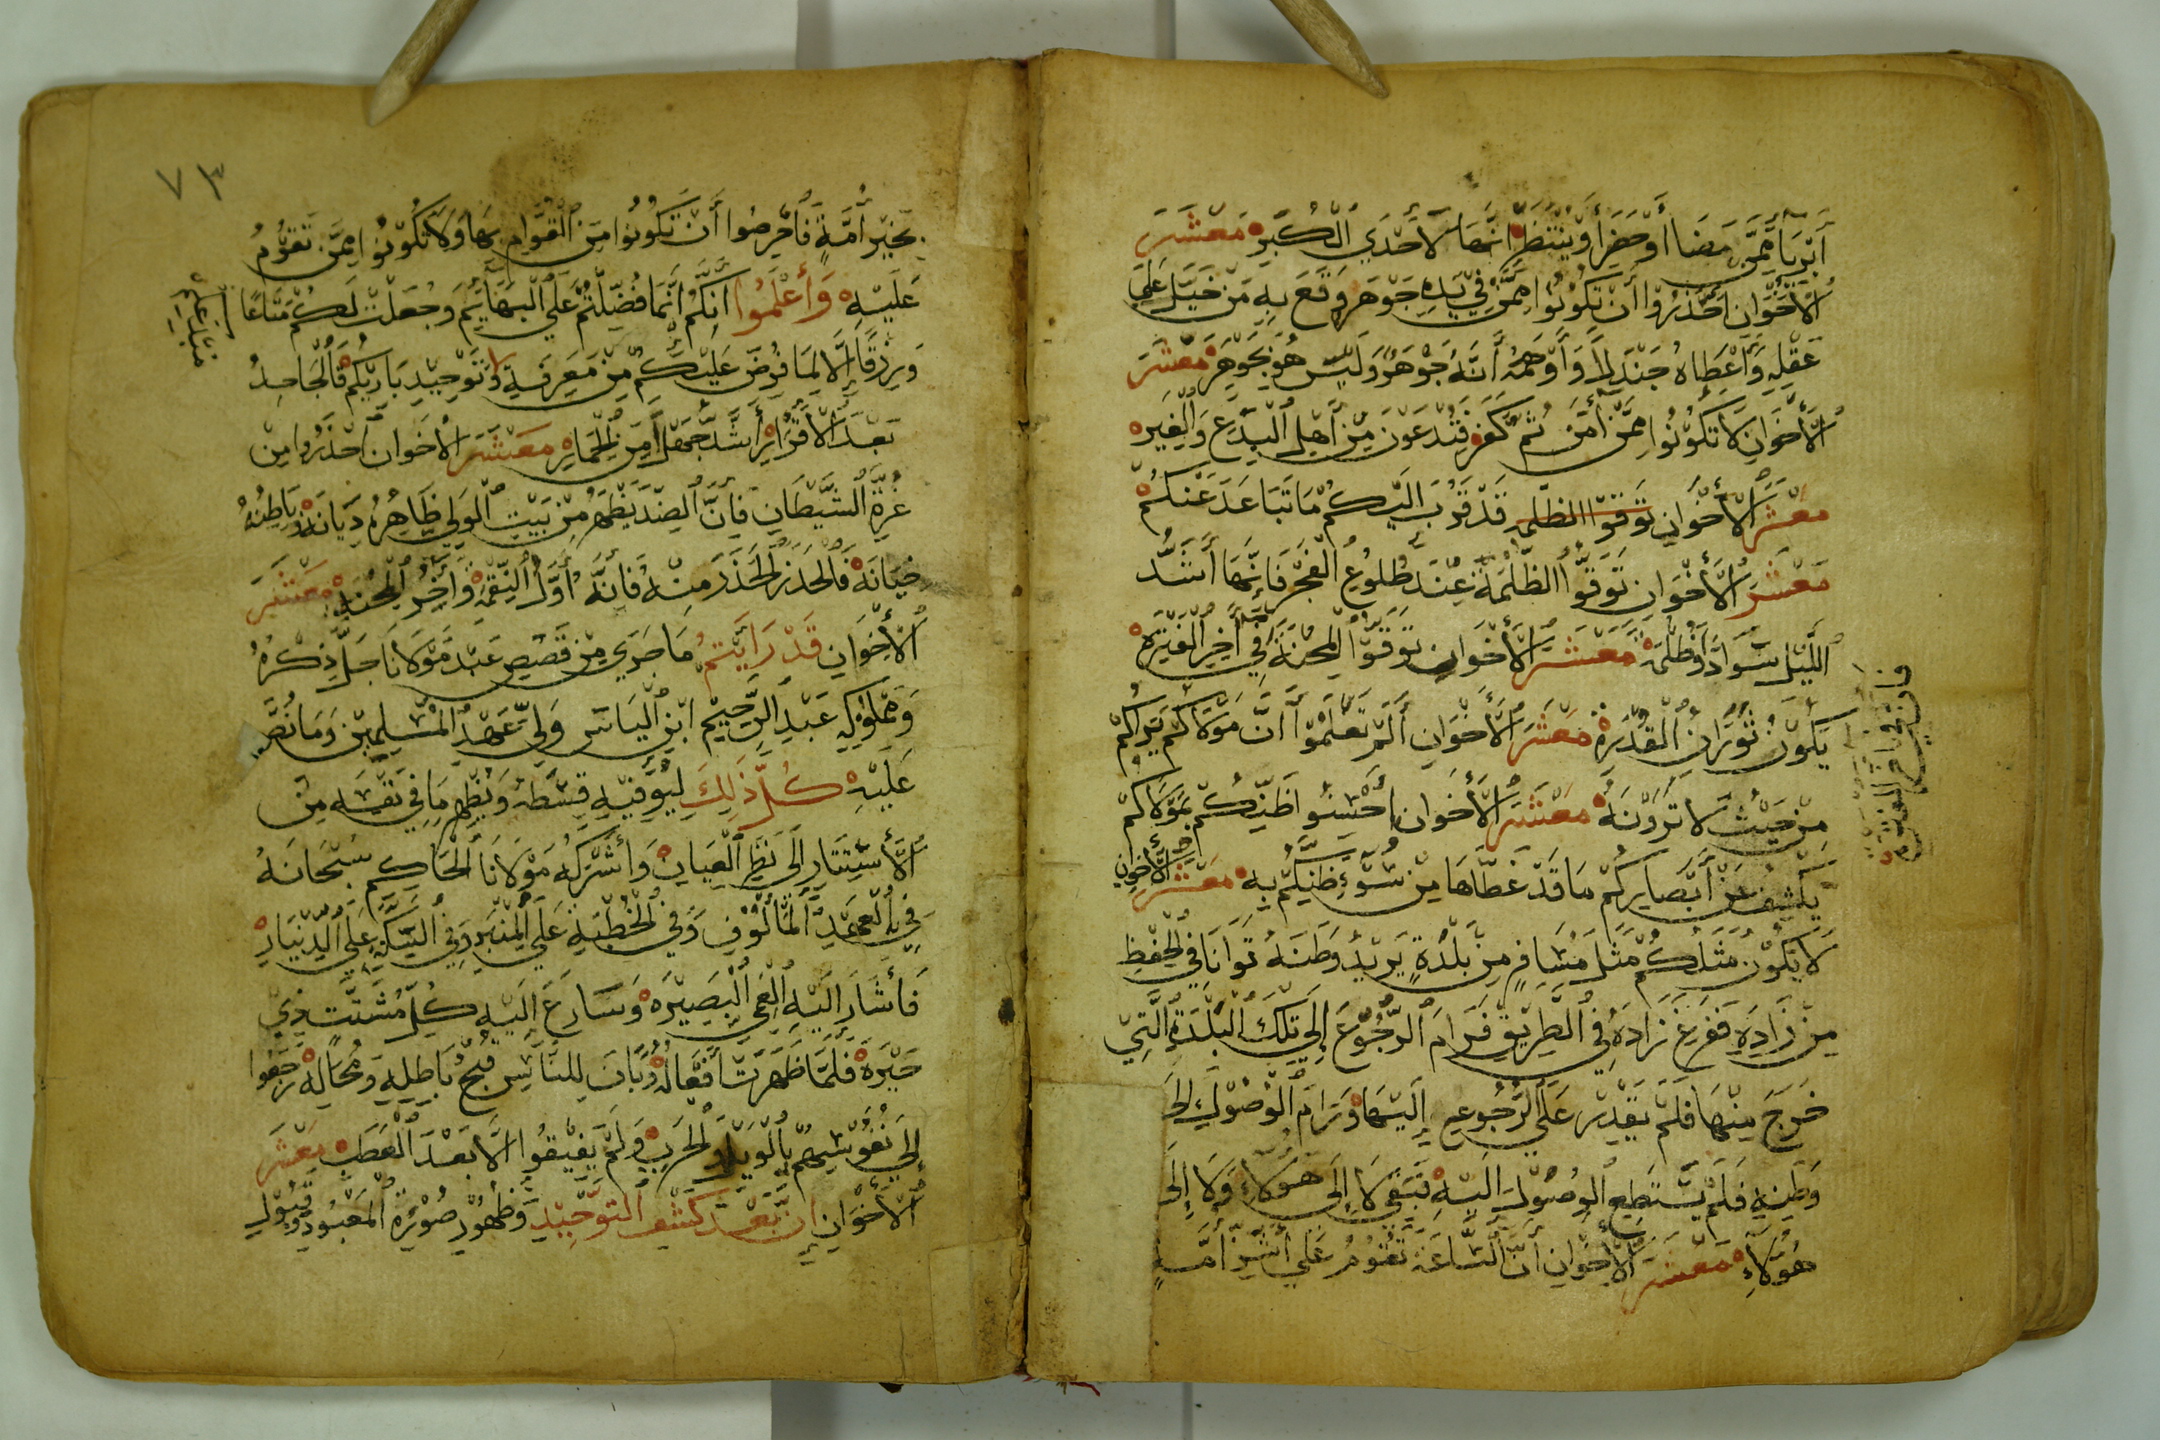 أبريا ممن مضا أو حضر أو ينتظر انها لاحدي الكبر معشر
الأخوان احذروا أن تكونوا ممن في يده جوهر وقع به من خيل علي
عقله وأعطاه جندلا وأوهمه أنه جوهر وليس هو بجوهر معشر
الأخوان لا تكونوا ممن أمن ثم كفر فتدعون من أهل البدع والغير
معشر الأخوان توقوا الظلمه قد قرب اليكم ما تباعد عنكم
معشر الأخوان توقوا الظلمة عند طلوع الفجر فانها أشد
الليل سوادا وظلمة معشر الأخوان توقوا المحنة في أخر الفترة
يكون ثوران القدرة معشر الأخوان ألم تعلموا أن مولاكم يراكم
من حيث لا ترونه معشر الأخوان احسنوا ظنكم بمولاكم
يكشف عن أبصاركم ما قد غطاها من سوء ظنكم به معشر الأخوان
لا يكون مثلكم مثل مسافر من بلدة يريد وطنه توانا في الحفظ
من زاده ففرغ زاده في الطريق فرام الرجوع إلي تلك البلدة التي
خرج منها فلم يقدر علي الرجوع إليها ورام الوصول الى
وطنه فلم يستطع الوصول اليه فبقي لا إلى هولاء ولا إلى
هولاء معشر الأخوان أن الساعة تقوم علي أشر أمة
٧٣
بخير أمة فاحرصوا أن تكونوا من القوام بها ولا تكونوا ممن تقوم
عليه وأعلموا انكم أنما فضلتم علي البهايم وجعلت لكم متاعا
ورزقا إلا لما فرض عليكم من معرفة وتوحيد باريكم فالجاحد
بعد الأقرار أشد جهلا من الحمار معشر الأخوان احذروا من
غرة الشيطان فان الضد يظهر من بيت الولي ظاهره ديانة وباطنه
خيانة فالحذر الحذر منه فانه أول النقمة وأخر المحنه معشر
الأخوان قد رايتم ما جري من قصص عبد مولانا جل ذكره
ومملوكه عبد الرحيم ابن الياس ولي عهد المسلمين وما نص
عليه كل ذلك ليوفيه قسطه ويظهر ما في نفسه من
الأستتار الى نظر العيان وأشركه مولانا الحاكم سبحانه
في العهد المالوف وفي الخطبة علي المنبر وفي السكة علي الدينار
فأشار اليه العمي البصيرة وسارع إليه كل مشتت ذي
حيرة فلما ظهرت أفعاله وبان للناس قبح باطله ومحاله رجعوا
إلي نفوسهم بالويل والحرب ولم يفيقوا الا بعد العطب معشر
الأخوان ان بعد كشف التوحيد وظهور صورة المعبود وقبول